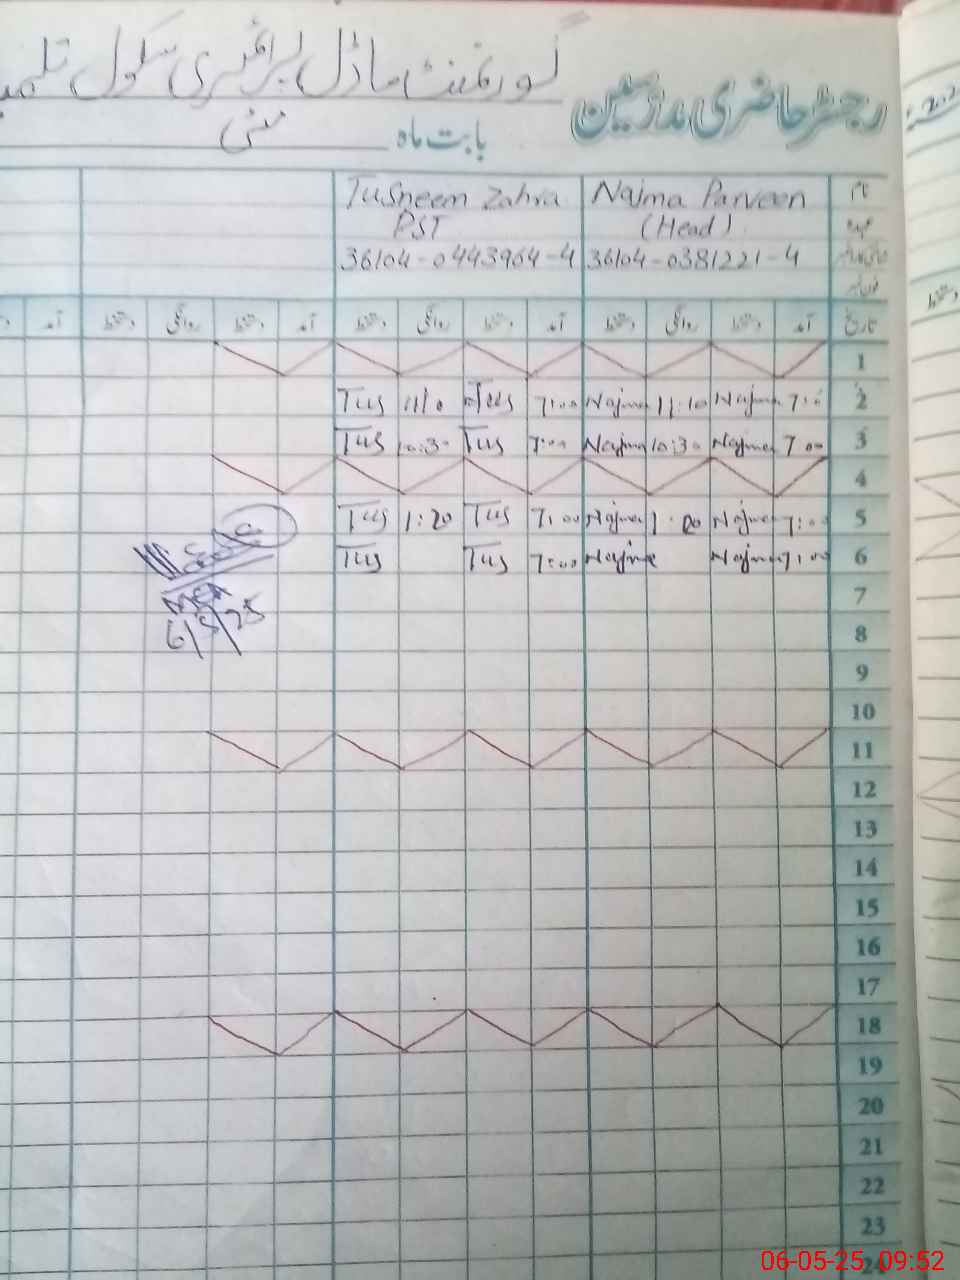 گورنمنٹ ماڈل پرائمری سکول تلمبہ
رجسٹر حاضری مدرسین
بابت ماہ مئی
نام Najma Parveen Tusneem Zahra
عہدہ (Head) PST
36104-0381221-4 36104-0443964-4
فون نمبر
تاریخ آمد دستخط روانگی دستخط آمد دستخط روانگی دستخط آمد دستخط روانگی دستخط آمد
1
2 7:00 Najma 11:10 Najma 7:00 Tus 11:10 Tus
3 7:00 Najma 10:30 Najma 7:00 Tus 10:30 Tus
4
5 7:00 Najma 1:20 Najma 7:00 Tus 1:20 Tus
6 7:00 Najma Najma 7:00 Tus Tus
MEA
6/5/25
7
8
9
10
11
12
13
14
15
16
17
18
19
20
21
22
23
24
06-05-25 09:52